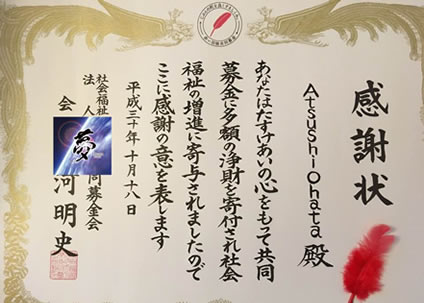 感謝状
AtsushiOhata 殿
あなたはたすけあいの心をもって共同
募金に多額の浄財を寄付され社会
福祉の増進に寄与されましたので
ここに感謝の意を表します
平成三十年十月十八日
社会福祉
法人
同募金会
会
河明史